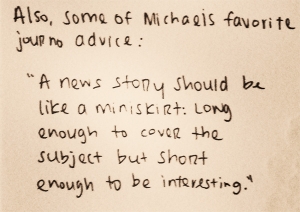 Also, some of Michaels favorite
journo advice:
"A news story should be
like a miniskirt: Long
enough to cover the
subject but short
enough to be interesting."